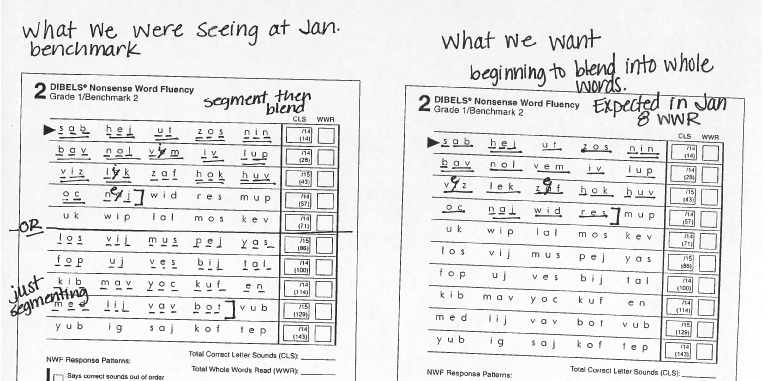 What we were seeing at Jan.
benchmark
2 DIBELS® Nonsense Word Fluency
Grade 1/Benchmark 2
segment then
blend
CLS WWR
sab hej ut zos nin /14 (14)
bav nol vim iv lup /14 (28)
viz zaf hok huv /15 (43)
oc ] wid res mup /14 (57)
uk wip lal mos kev /14 (71)
OR
los vij mus pej yas /15 (86)
fop uj ves bij tal /14 (100)
just
segmenting
kib mav yoc kuf en /14 (114)
med lij vav bot ] vub /15 (129)
yub ig saj kof tep /14 (143)
NWF Response Patterns:
Total Correct Letter Sounds (CLS):
Says correct sounds out of order
Total Whole Words Read (WWR):
What we want
beginning to blend into whole
words.
2 DIBELS® Nonsense Word Fluency
Grade 1/Benchmark 2
Expected in Jan
8 WWR
CLS WWR
sab hej ut zos nin /14 (14)
bav nol vem iv lup /14 (28)
lek hok huv /15 (43)
oc naj wid res ] mup /14 (57)
uk wip lal mos kev /14 (71)
los vij mus pej yas /15 (86)
fop uj ves bij tal /14 (100)
kib mav yoc kuf en /14 (114)
med lij vav bot vub /15 (129)
yub ig saj kof tep /14 (143)
NWF Response Patterns:
Total Correct Letter Sounds (CLS):